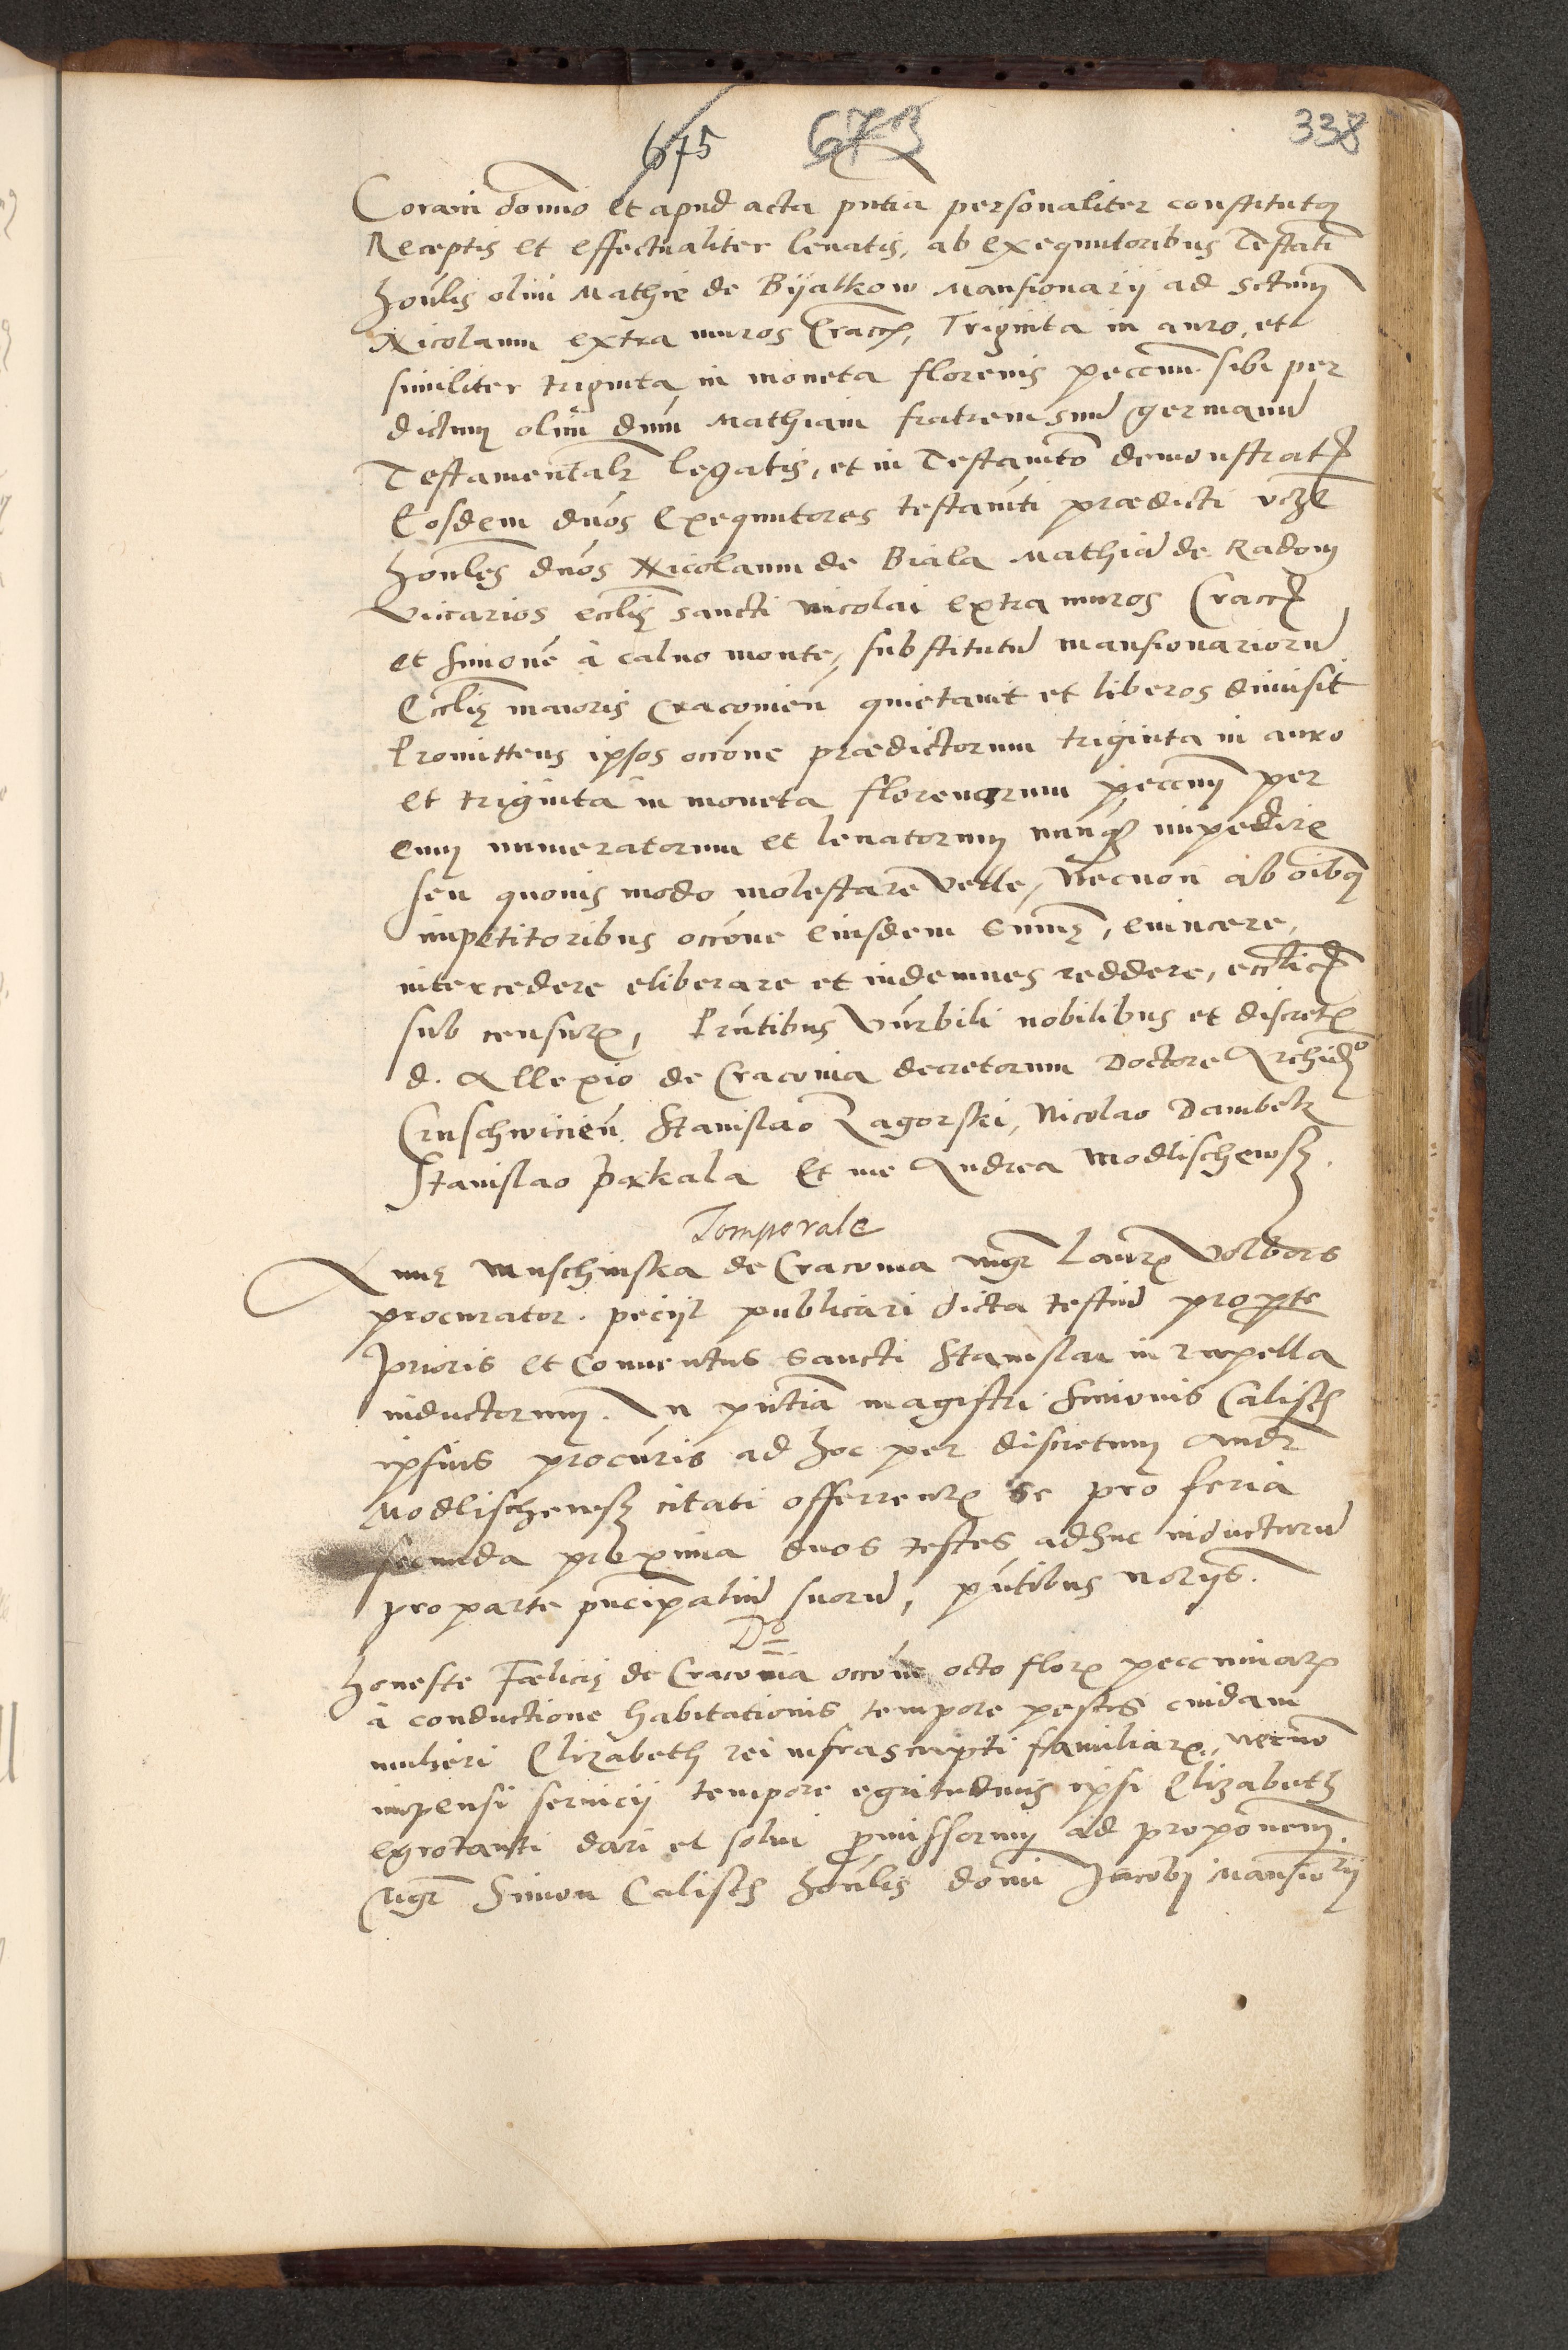 675 673 338
Coram domno et apud acta pntia personaliter constitutus
Receptis et effectualiter levatis, ab exequutoribus Testati
honlis olim Mathie de Bijalkow Mansionarij ad Sctum
Nicolaum extra muros Cracc, Triginta in auro, et
similiter triginta in moneta florenis peccun sibi per
dictum olim dnm Mathiam fratrem suu germanu
Testamentalr legatis, et in Testamto demonstratis
Eosdem dnos Exequutores testamti praedicti vczl
honles dnos Nicolaum de Biala Mathia de Radom
Vicarios eccliē sancti Nicolai extra muros Cracc
et Simonē à calvo monte, substitutu mansionarioru
Eccliē maioris Cracovien quietavit et liberos dimisit
Promittens ipsos occōne praedictorum triginta in auro
et triginta in moneta florenorum peccun per
eum numeratorum et levatorum nunqz impedire
seu quovis modo molestare velle, Necnon ab oibus
impetitoribus occōne eiusdem summe, evincere,
intercedere eliberare et indemnes reddere, ecclicis
sub censuris, Pntibus Vnrbili nobilibus et discretis
d. Allexio de Cracovia decretorum Doctore Archidno
Cruschwicien Stanislao Zagorski, Nicolao Dambek
Stanislao Pakala Et me Andrea Modlischewski.
Temporale
Anne Muschinska de Cracovia mgr Laure Volbors
procurator. peciit publicari dicta testiu pro pte
prioris et Conventus Sancti Stanislai in rupella
inductorum. In pntia magistri Simonis Calisch
ipsius procuris ad hoc per discretum Andr
Modlischewski citati offerentis se pro feria
secunda proxima duos testes adhuc inducturu
pro parte pncipaliu suoru, pntibus notijs.
Do
honeste Foelicis de Cracovia occōne octo flor peccuniar
à conductione habitationis tempore pestis cuidam
mulieri Elizabeth rei infrascripti familiari, necno
inpensi servicij tempore egritudinis ipsi Elizabeth
egrotanti dari et solvi promissorum ad proponem.
Mgr Simon Calisch honlis domni Jacobi Mansiorij